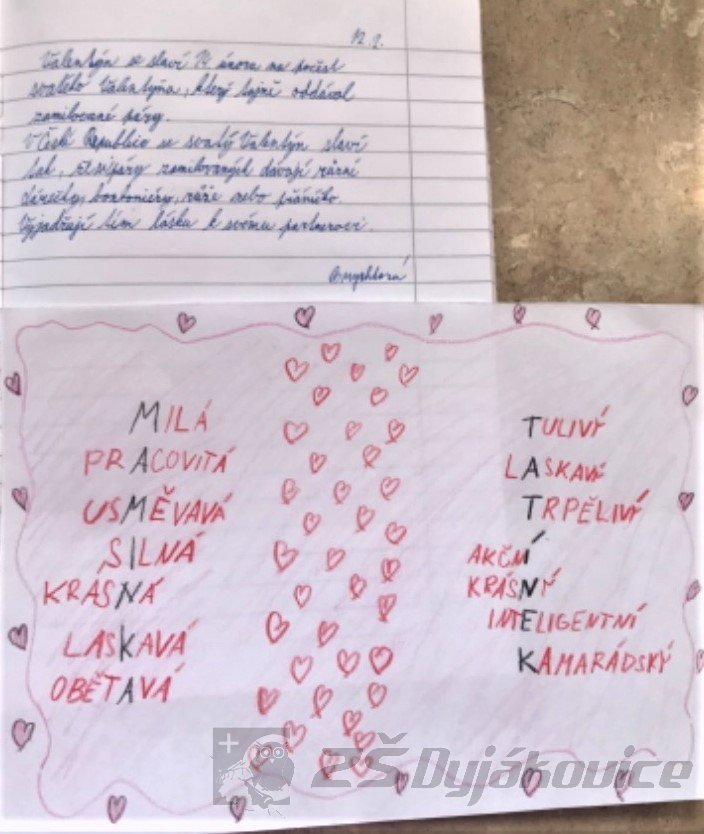 12. 2.
Valentýn se slaví 14. února na počest
svatého Valentýna, který tajně oddával
zamilované páry.
V České Republice se svatý Valentýn slaví
tak, že si páry zamilovaných dávají různé
dárečky, bonboniéry, růže nebo přáníčko.
Vyjadřují tím lásku k svému partnerovi.
MILÁ
PRACOVITÁ
USMĚVAVÁ
SILNÁ
KRÁSNÁ
LASKAVÁ
OBĚTAVÁ
TULIVÝ
LASKAVÝ
TRPĚLIVÝ
AKČNÍ
KRÁSNÝ
INTELIGENTNÍ
KAMARÁDSKÝ
ZŠ Dyjákovice